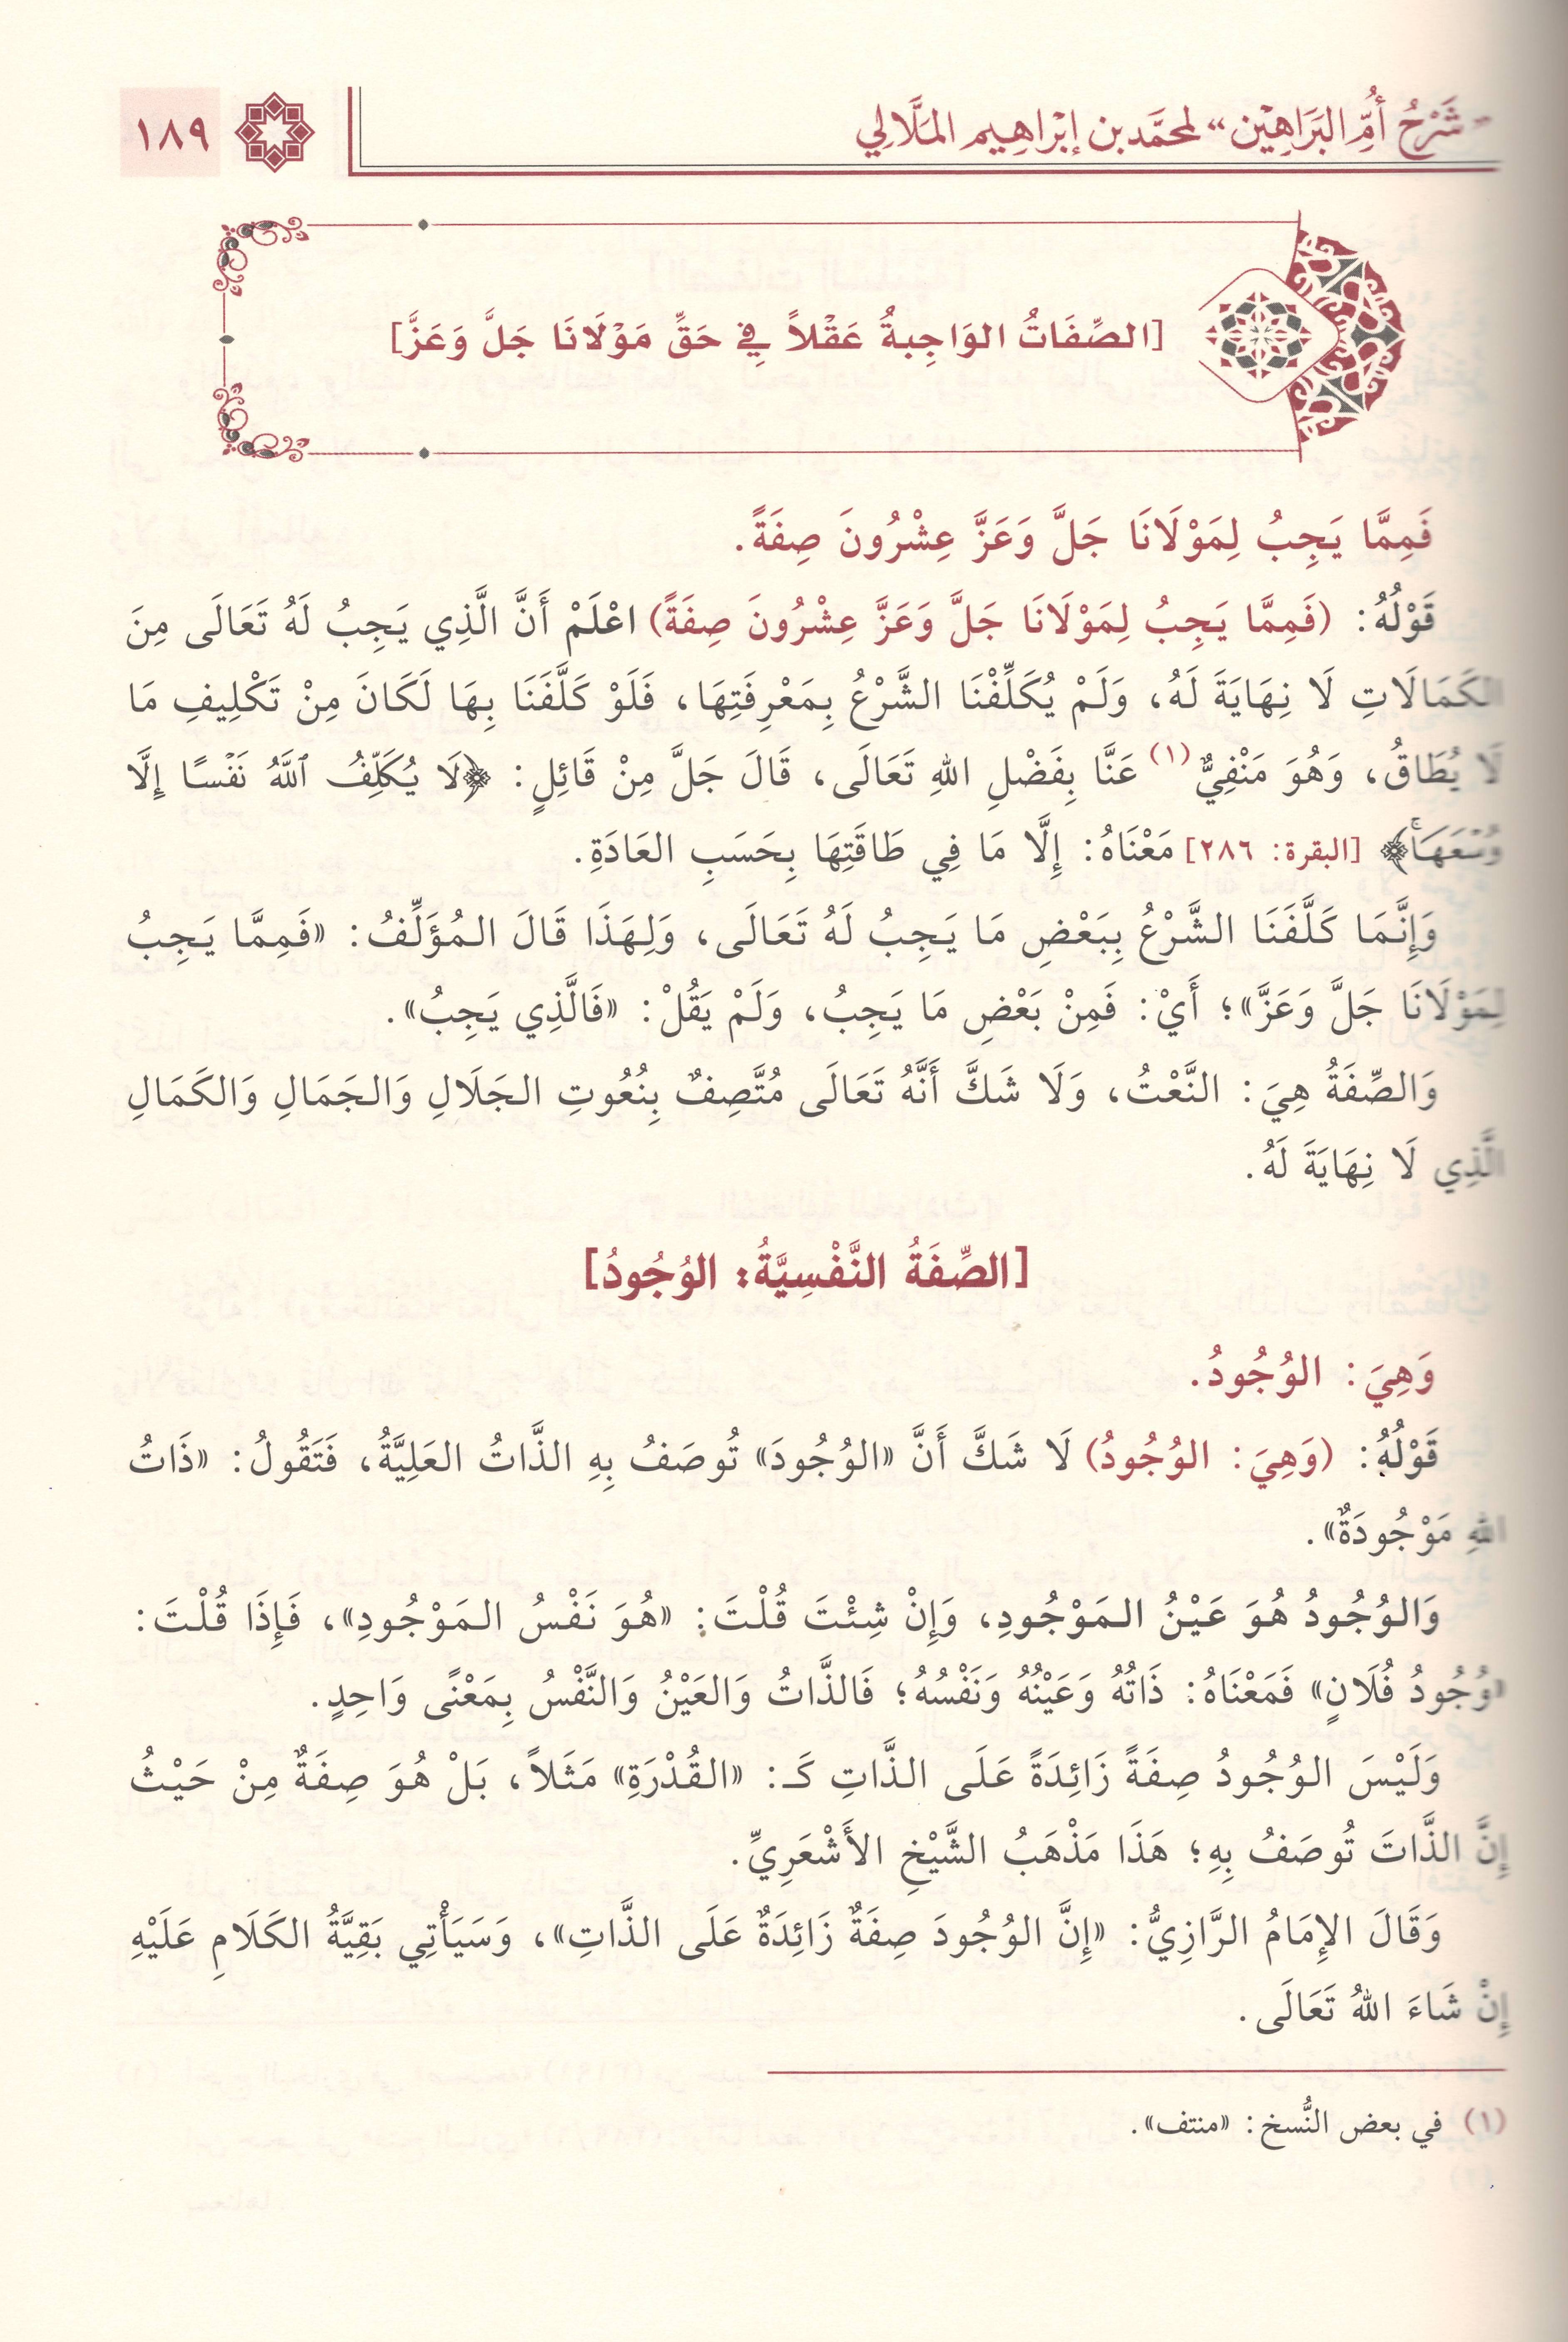 «شَرْحُ أُمِّ البَرَاهِيْن» لمحمَّد بن إبْرَاهِيم المَلَّالي
١٨٩
[الصِّفَاتُ الوَاجِبةُ عَقْلاً فِي حَقِّ مَوْلَانَا جَلَّ وَعَزَّ]
فَمِمَّا يَجِبُ لِمَوْلَانَا جَلَّ وَعَزَّ عِشْرُونَ صِفَةً.
قَوْلُهُ: (فَمِمَّا يَجِبُ لِمَوْلَانَا جَلَّ وَعَزَّ عِشْرُونَ صِفَةً) اعْلَمْ أَنَّ الَّذِي يَجِبُ لَهُ تَعَالَى مِنَ
الكَمَالَاتِ لَا نِهَايَةَ لَهُ، وَلَمْ يُكَلِّفْنَا الشَّرْعُ بِمَعْرِفَتِهَا، فَلَوْ كَلَّفَنَا بِهَا لَكَانَ مِنْ تَكْلِيفِ مَا
لَا يُطَاقُ، وَهُوَ مَنْفِيٌّ(١) عَنَّا بِفَضْلِ اللهِ تَعَالَى، قَالَ جَلَّ مِنْ قَائِلٍ: ﴿لَا يُكَلِّفُ ٱللَّهُ نَفْسًا إِلَّا
وُسْعَهَاۚ﴾ [البقرة: ٢٨٦] مَعْنَاهُ: إِلَّا مَا فِي طَاقَتِهَا بِحَسَبِ العَادَةِ.
وَإِنَّمَا كَلَّفَنَا الشَّرْعُ بِبَعْضِ مَا يَجِبُ لَهُ تَعَالَى، وَلِهَذَا قَالَ المُؤَلِّفُ: «فَمِمَّا يَجِبُ
لِمَوْلَانَا جَلَّ وَعَزَّ»؛ أَيْ: فَمِنْ بَعْضِ مَا يَجِبُ، وَلَمْ يَقُلْ: «فَالَّذِي يَجِبُ».
وَالصِّفَةُ هِيَ: النَّعْتُ، وَلَا شَكَّ أَنَّهُ تَعَالَى مُتَّصِفٌ بِنُعُوتِ الجَلَالِ وَالجَمَالِ وَالكَمَالِ
الَّذِي لَا نِهَايَةَ لَهُ.
[الصِّفَةُ النَّفْسِيَّةُ: الوُجُودُ]
وَهِيَ: الوُجُودُ.
قَوْلُهُ: (وَهِيَ: الوُجُودُ) لَا شَكَّ أَنَّ «الوُجُودَ» تُوصَفُ بِهِ الذَّاتُ العَلِيَّةُ، فَتَقُولُ: «ذَاتُ
اللهِ مَوْجُودَةٌ».
وَالوُجُودُ هُوَ عَيْنُ المَوْجُودِ، وَإِنْ شِئْتَ قُلْتَ: «هُوَ نَفْسُ المَوْجُودِ»، فَإِذَا قُلْتَ:
«وُجُودُ فُلَانٍ» فَمَعْنَاهُ: ذَاتُهُ وَعَيْنُهُ وَنَفْسُهُ؛ فَالذَّاتُ وَالعَيْنُ وَالنَّفْسُ بِمَعْنًى وَاحِدٍ.
وَلَيْسَ الوُجُودُ صِفَةً زَائِدَةً عَلَى الذَّاتِ كَـ: «القُدْرَةِ» مَثَلاً، بَلْ هُوَ صِفَةٌ مِنْ حَيْثُ
إِنَّ الذَّاتَ تُوصَفُ بِهِ؛ هَذَا مَذْهَبُ الشَّيْخِ الأَشْعَرِيِّ.
وَقَالَ الإِمَامُ الرَّازِيُّ: «إِنَّ الوُجُودَ صِفَةٌ زَائِدَةٌ عَلَى الذَّاتِ»، وَسَيَأْتِي بَقِيَّةُ الكَلَامِ عَلَيْهِ
إِنْ شَاءَ اللهُ تَعَالَى.
(١) في بعض النُّسخ: «منتف».